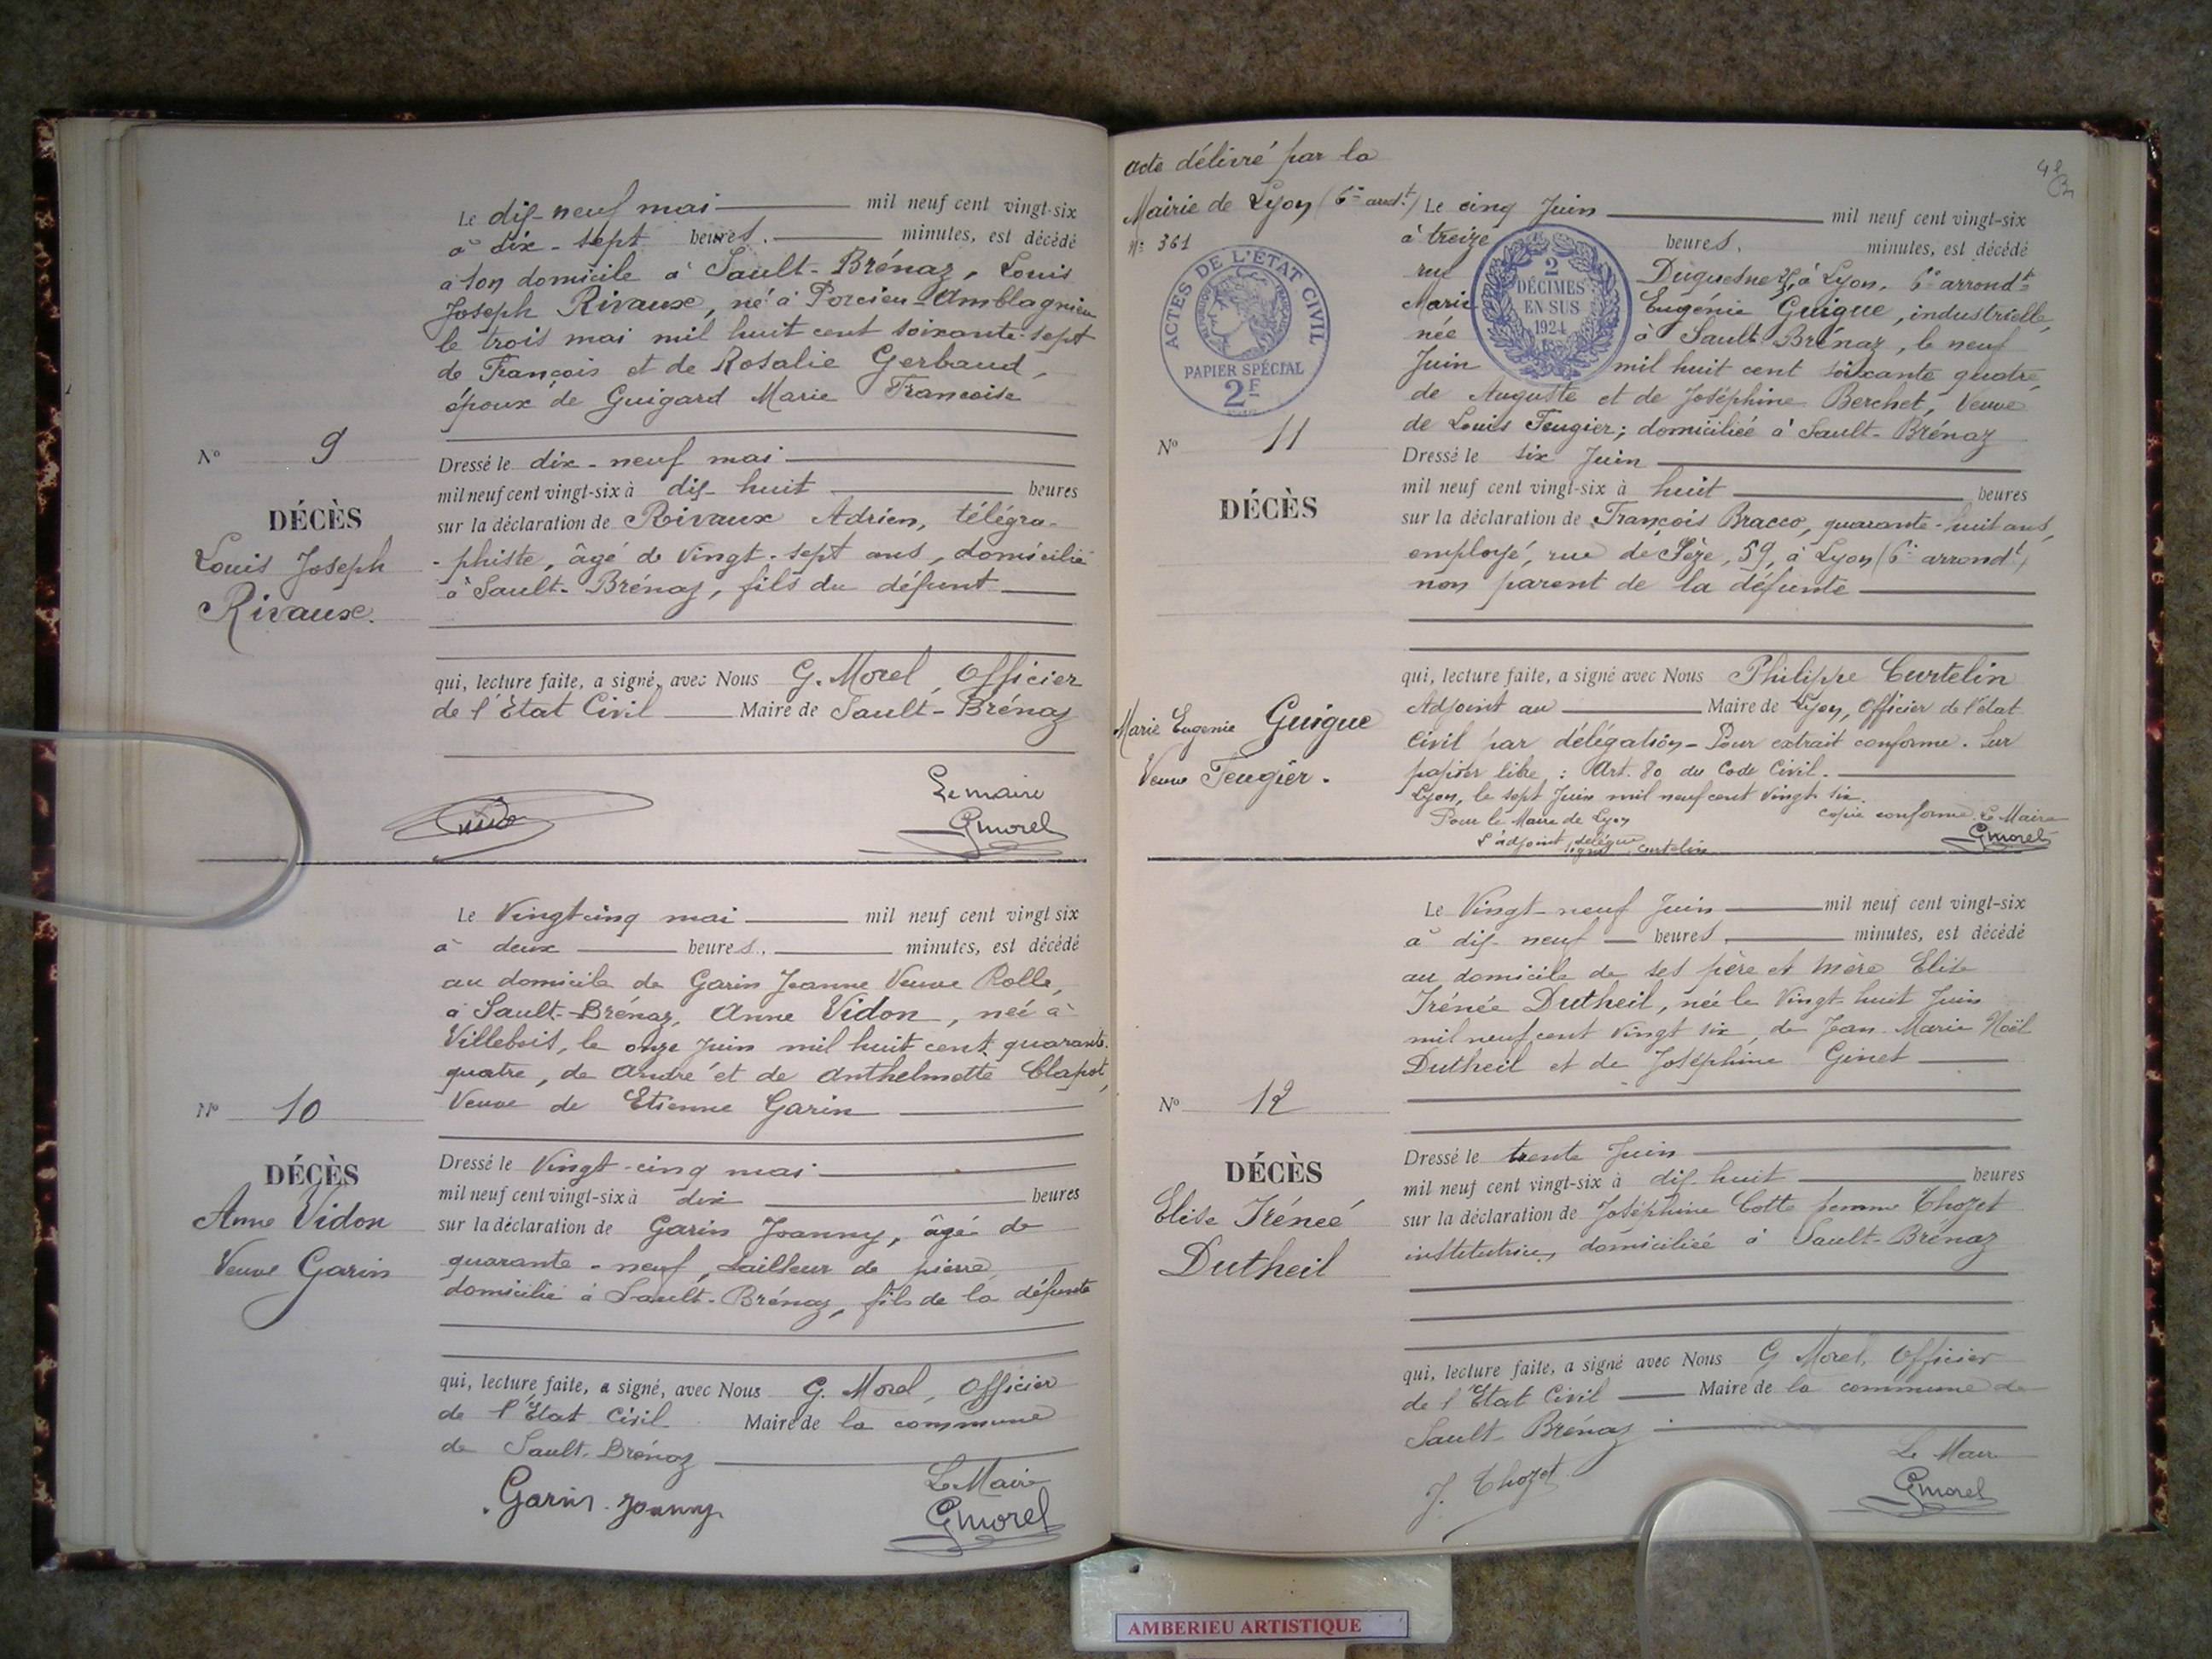 Le dix-neuf mai mil neuf cent vingt-six
à dix-sept heures, minutes, est décédé
à son domicile à Sault-Brénaz, Louis
Joseph Rivaux, né à Porcieu-Amblagnieu
le trois mai mil huit cent soixante-sept
de François et de Rosalie Gerbaud,
époux de Guigard Marie Francoise
N° 9
Dressé le dix-neuf mai
mil neuf cent vingt-six à dix-huit heures
DÉCÈS
sur la déclaration de Rivaux Adrien, télégra-
Louis Joseph
-phiste, âgé de vingt-sept ans, domicilié
Rivaux.
à Sault-Brénaz, fils du défunt
qui, lecture faite, a signé, avec Nous G. Morel, Officier
de l'Etat Civil Maire de Sault-Brénaz
Le maire
Gmorel
Le Vingt cinq mai mil neuf cent vingt six
à deux heures, minutes, est décédé
au domicile de Garin Jeanne Veuve Rolle,
à Sault-Brénaz, Anne Vidon, née à
Villebois, le onze juin mil huit cent quarante-
quatre, de André et de Anthelmette Clapot,
N° 10
Veuve de Etienne Garin
Dressé le Vingt-cinq mai
DÉCÈS
mil neuf cent vingt-six à dix heures
Anne Vidon
sur la déclaration de Garin Joanny, âgé de
Veuve Garin
quarante-neuf, tailleur de pierre
domicilié à Sault-Brénaz, fils de la défunte
qui, lecture faite, a signé, avec Nous G. Morel, Officier
de l'Etat Civil Maire de la commune
de Sault-Brénaz
Le Maire
Garin Joanny
Gmorel
acte délivré par la
Mairie de Lyon (6e arrdt)
N° 361
ACTES DE L'ÉTAT CIVIL
PAPIER SPÉCIAL
2F
2
DÉCIMES
EN SUS
1924
Le cinq Juin mil neuf cent vingt-six
à treize heures, minutes, est décédé
rue Duguesne, à Lyon, 6e arrondt
Marie Eugénie Guigue, industrielle,
née à Sault-Brénaz, le neuf
Juin mil huit cent soixante quatre,
de Auguste et de Joséphine Berchet, Veuve
de Louis Feugier; domiciliée à Sault-Brénaz
N° 11
Dressé le six Juin
mil neuf cent vingt-six à huit heures
DÉCÈS
sur la déclaration de François Bracco, quarante-huit ans,
employé, rue de Sèze, 59, à Lyon (6e arrondt)
non parent de la défunte
qui, lecture faite, a signé avec Nous Philippe Curtelin
Adjoint au Maire de Lyon, Officier de l'état
Marie Eugenie Guigue
civil par délégation - Pour extrait conforme. Sur
Veuve Feugier.
papier libre : Art. 80 du Code Civil.
Lyon, le sept Juin mil neuf cent vingt six.
Pour le Maire de Lyon
L'adjoint délégué
signé Curtelin
copie conforme Le Maire
Gmorel
Le Vingt-neuf Juin mil neuf cent vingt-six
à dix-neuf heures, minutes, est décédé
au domicile de ses père et mère Elise
Irénée Dutheil, née le Vingt-huit Juin
mil neuf cent vingt six, de Jean Marie Noël
Dutheil et de Joséphine Ginet
N° 12
Dressé le trente Juin
DÉCÈS
mil neuf cent vingt-six à dix-huit heures
Elise Irénéé
sur la déclaration de Joséphine Cotte femme Thozet
Dutheil
institutrice, domiciliée à Sault-Brénaz
qui, lecture faite, a signé avec Nous G Morel, Officier
de l'Etat Civil Maire de la commune de
Sault-Brénaz
Le Maire
J. Thozet
Gmorel
AMBERIEU ARTISTIQUE